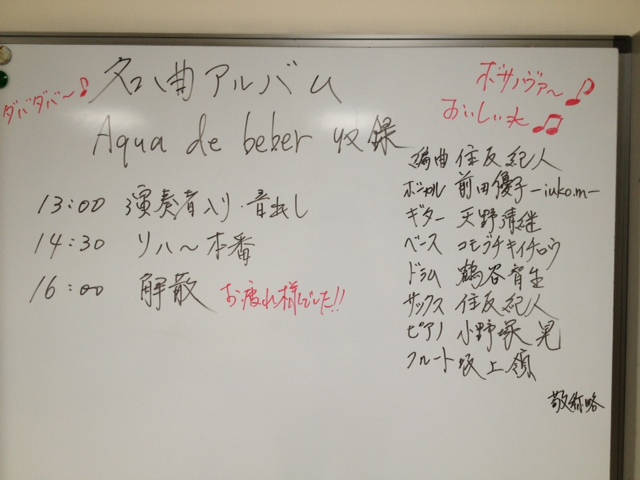 ダバダバ〜♪
名曲アルバム
Aqua de beber 収録
ボサノヴァ〜♪
おいしい水♫
13:00 演奏者入り・音出し
14:30 リハ〜本番
16:00 解散 お疲れ様でした!!
編曲 住友紀人
ボーカル 前田優子-iuko.m-
ギター 天野清継
ベース コモブチキイチロウ
ドラム 鶴谷智生
サックス 住友紀人
ピアノ 小野塚晃
フルート 坂上領
敬称略